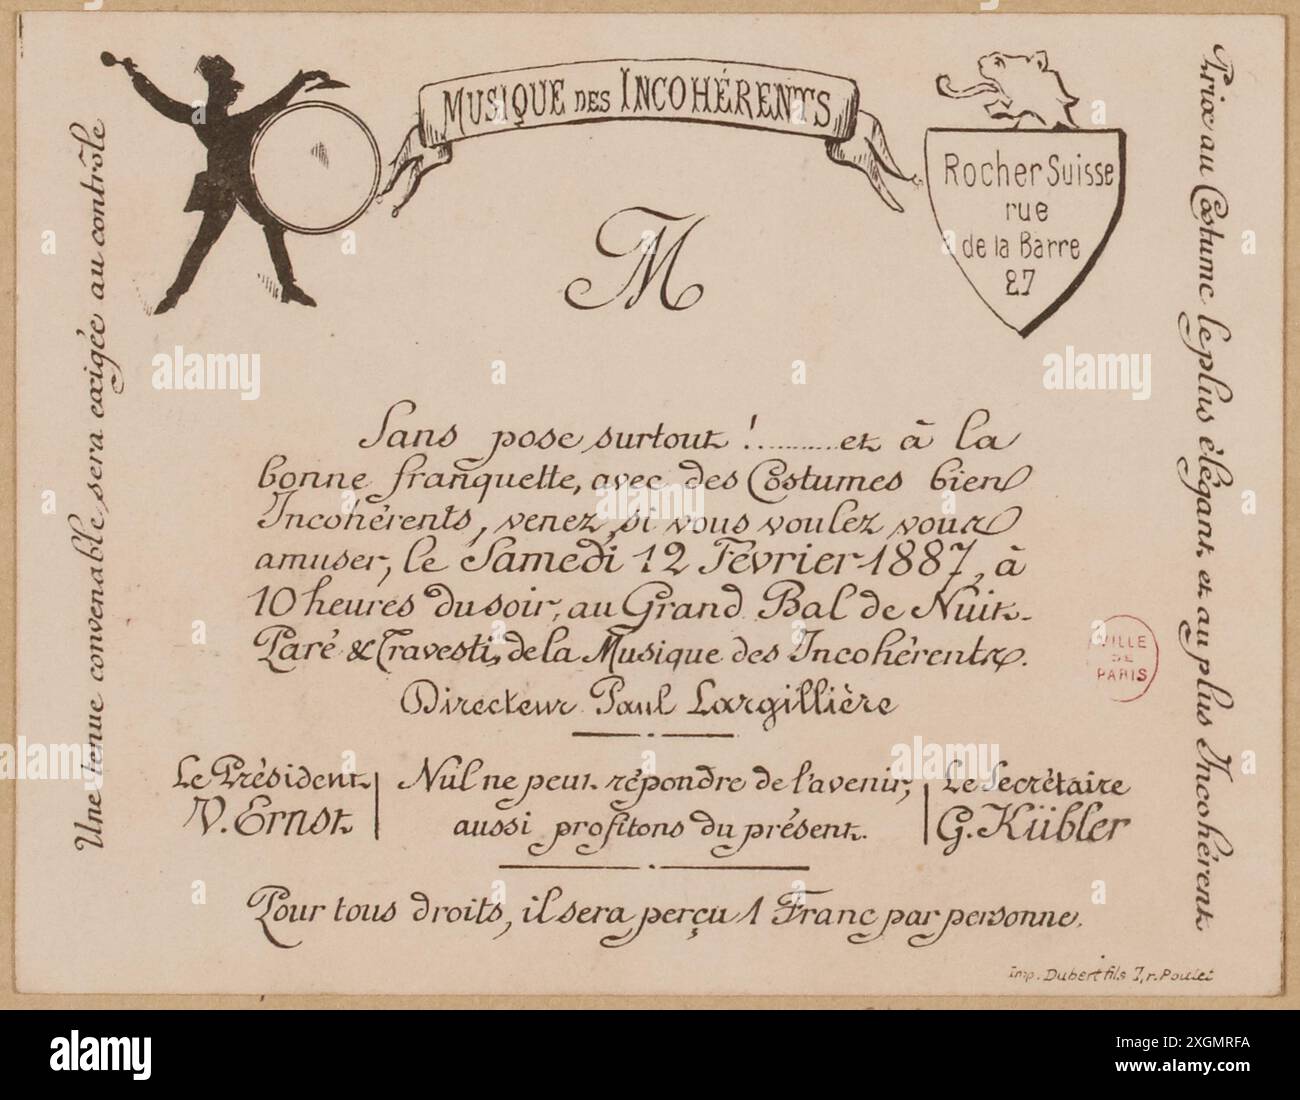 Musique des Incohérents
Rocher Suisse
rue
de la Barre
27
M
Une tenue convenable, sera exigée au contrôle
Prix au Costume le plus élégant et au plus Incohérent
Sans pose surtout !..........et à la
bonne franquette, avec des Costumes bien
Incohérents, venez, si vous voulez vous
amuser, le Samedi 12 Février 1887, à
10 heures du soir, au Grand Bal de Nuit
Paré & Travesti, de la Musique des Incohérents.
Directeur Paul Largillière
Le Président
V. Ernst
Nul ne peut répondre de l'avenir,
aussi profitons du présent.
Le Secrétaire
G. Kübler
Pour tous droits, il sera perçu 1 Franc par personne.
Imp. Dubert fils 7, r. Poulet
VILLE
DE
PARIS
alamy
alamy
Image ID: 2XGMRFA
www.alamy.com